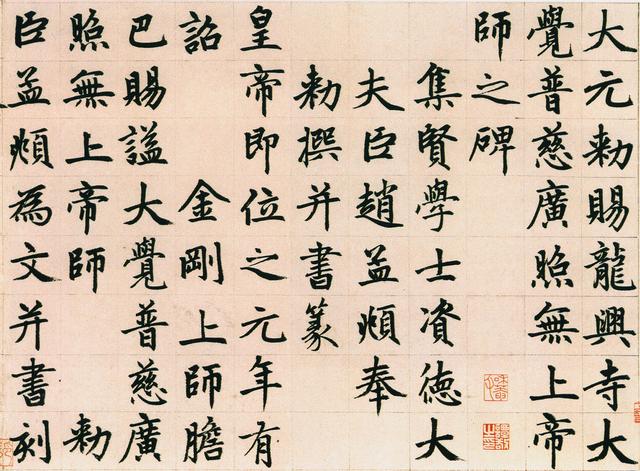 大元勅賜龍興寺大
覺普慈廣照無上帝
師之碑
集賢學士資德大
夫臣趙孟頫奉
勅撰并書篆
皇帝即位之元年有
詔金剛上師膽
巴賜謚大覺普慈廣
照無上帝師勅
臣孟頫為文并書刻